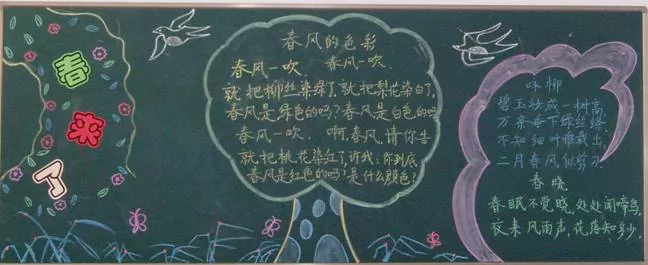 春来了
春风的色彩
春风一吹,春风一吹,
就把柳丝染绿了,就把梨花染白了,
春风是绿色的吗?春风是白色的吗
春风一吹,啊,春风,请你告
就把桃花染红了,诉我,你到底
春风是红色的吗?是什么颜色?
咏柳
碧玉妆成一树高
万条垂下绿丝绦
不知细叶谁裁出
二月春风似剪刀
春晓
春眠不觉晓,处处闻啼鸟,
夜来风雨声,花落知多少.